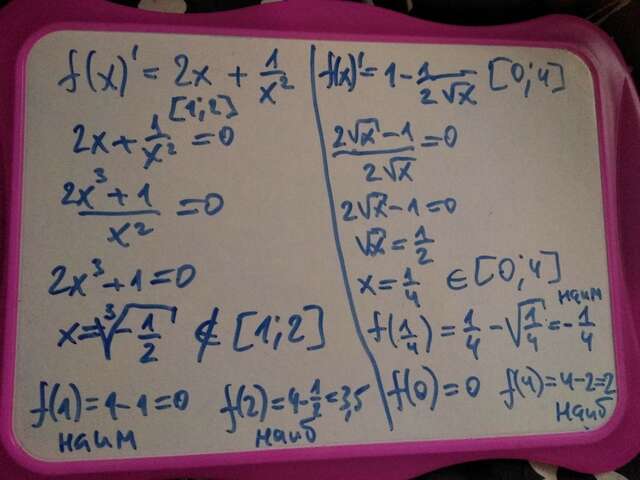 f(x)' = 2x + 1/x²
[1;2]
2x + 1/x² = 0
(2x³ + 1)/x² = 0
2x³ + 1 = 0
x = ∛(-1/2) ∉ [1;2]
f(1) = 1 - 1 = 0 f(2) = 4 - 1/2 = 3,5
наим наиб
f(x)' = 1 - 1/(2√x) [0;4]
(2√x - 1)/(2√x) = 0
2√x - 1 = 0
√x = 1/2
x = 1/4 ∈ [0;4]
наим
f(1/4) = 1/4 - √(1/4) = -1/4
f(0) = 0 f(4) = 4 - 2 = 2
наиб